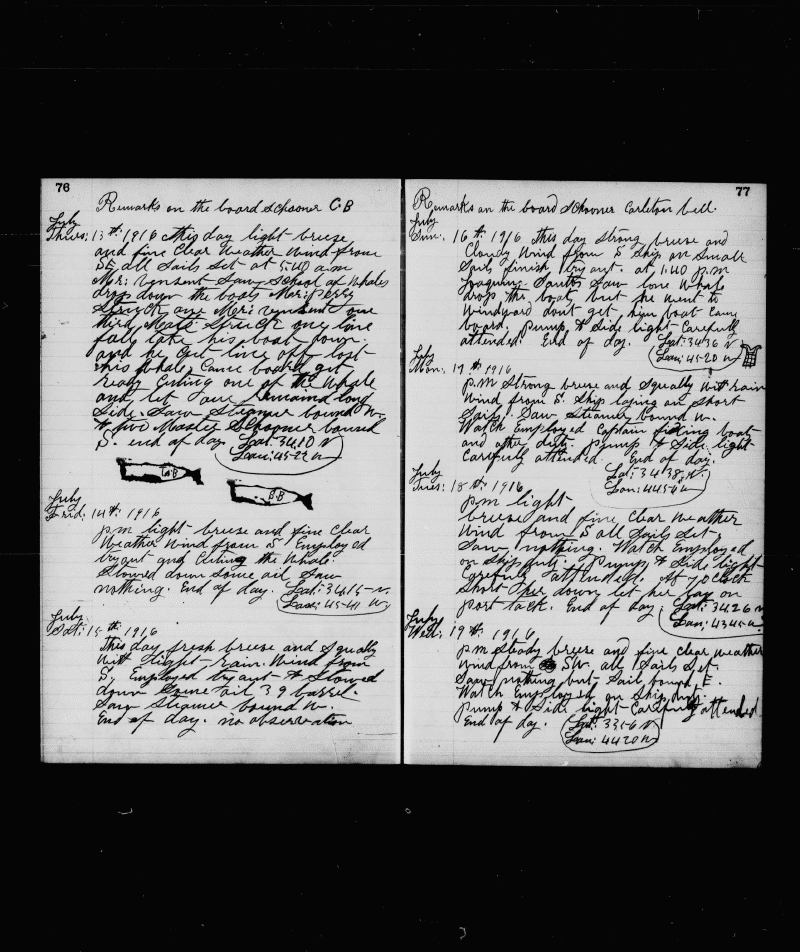 76
Remarks on the board Schooner C.B
July
Thurs: 13th 1916 this day light breeze
and fine Clear Weather Wind from
SE all Sails Set at 5:40 a.m
Mr: Vynsent Saw School of Whales
drop down the boats Mr: Perry
Struck one Mr: Vynsent one
third Mate Struck one line
foly take his boat down.
and he Cut line off lost
his whale, Came board get
ready Cuting one of the Whale
and let one remained long
Side. Saw Steamer bound W.
& five Master Schooner bound
S. end of day Lat: 3410 N
Lon: 45-22 W
C-B
C-B
July
Frid: 14th 1916
p.m light breeze and fine Clear
Weather Wind from S. Employed
tryout and Cuting the Whale.
Stowed down Some oil Saw
nothing. End of day. Lat: 3415- N.
Lon: 45-41 W
July
Sat: 15th 1916
This day fresh breeze and Squally
Witt light rain. Wind from
S, Employed tryout & Stowed
down Some oil 39 barrel.
Saw Steamer bound W.
End of day. no observation
77
Remarks on the board Schooner Carleton bell.
July
Sun: 16th 1916 this day strong breeze and
Cloudy Wind from S Ship on Small
Sails finish tryout. at 1:40 p.m
Joaquim Santos Saw lone Whale
drop the boat, but he went to
Windyard dont get, him boat Came
board, pump, & Side light Carefully
attended. End of day. Lat: 3436 N
Lon: 45-20 W
July
Mon: 17th 1916
p.m Strong breeze and Squally Witt rain
Wind from S. Ship laping on Short
Sails. Saw Steamer bound W.
Watch Employed Captain fixing boat
and other duty. Pump & Side light
Carefully attended. End of day.
Lat: 3438 N.
Lon: 4454 W
July
Tues: 18th 1916
p.m light
breeze and fine Clear Weather
Wind from S all Sails Set.
Saw nothing. Watch Employed
on Ship duty. Pump, & Side light
Carefuly attended. At 7 o'clock
Short her down let her lay on
port tack. End of day. Lat: 3426 N
Lon: 4345 W
July
Wed: 19th 1916
p.m Steady breeze and fine clear weather
Wind from SW, all Sails Set.
Saw nothing but Sail bound E.
Watch Employed on Ship duty.
pump & Side light Carefuly attended
End of day. Lat: 3356 N
Lon: 4420 W